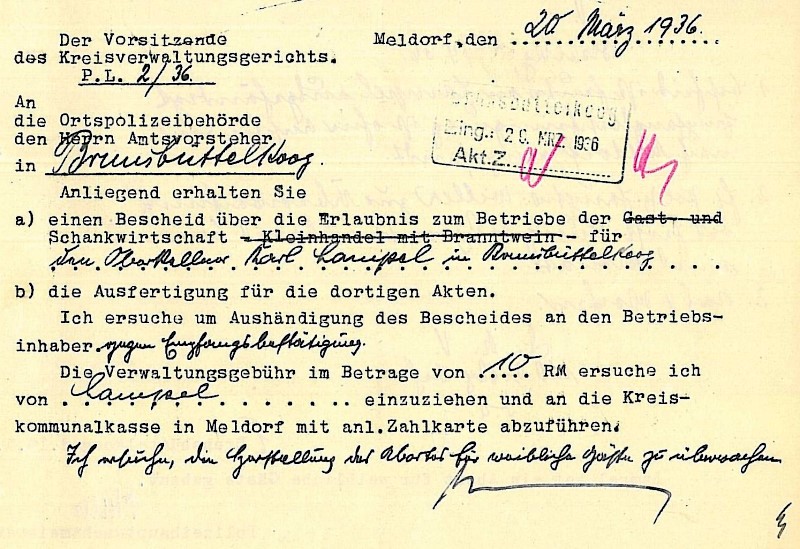 Der Vorsitzende
des Kreisverwaltungsgerichts.
P.L. 2/36.
Meldorf, den 20 März 1936.
An
die Ortspolizeibehörde
den Herrn Amtsvorsteher
in Brunsbüttelkoog.
Brunsbüttelkoog
Eing. 20. MRZ. 1936
Akt.Z.
Anliegend erhalten Sie
a) einen Bescheid über die Erlaubnis zum Betriebe der Gast- und
Schankwirtschaft - Kleinhandel mit Branntwein - für
den Oberkellner Karl Lampel in Brunsbüttelkoog
b) die Ausfertigung für die dortigen Akten.
Ich ersuche um Aushändigung des Bescheides an den Betriebs-
inhaber gegen Empfangsbestätigung.
Die Verwaltungsgebühr im Betrage von 10 RM ersuche ich
von Lampel einzuziehen und an die Kreis-
kommunalkasse in Meldorf mit anl. Zahlkarte abzuführen.
Ich ersuche, die Herstellung des Abortes für weibliche Gäste zu überwachen